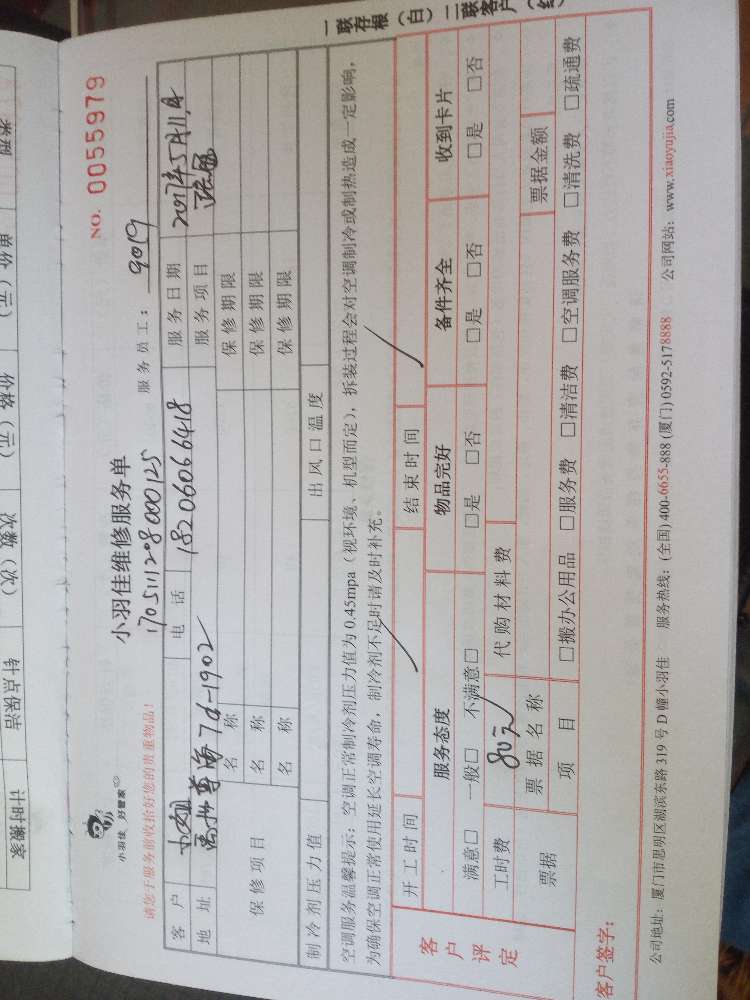 NO. 0055979
小羽佳 好管家
小羽佳维修服务单
170511208000125
请您于服务前收拾好您的贵重物品!
服务员工: 9019
客户
电话 18206066418
服务日期 2017年5月11日
地址 禹州尊海7d-1902
服务项目
保修项目
名称 保修期限
名称 保修期限
名称 保修期限
制冷剂压力值 出风口温度
空调服务温馨提示:空调正常制冷剂压力值为 0.45mpa(视环境、机型而定),拆装过程会对空调制冷或制热造成一定影响,
为确保空调正常使用延长空调寿命,制冷剂不足时请及时补充。
客户评定
开工时间 结束时间
服务态度 物品完好 备件齐全 收到卡片
满意□ 一般□ 不满意□ □是 □否 □是 □否 □是 □否
工时费 80元 代购材料费
票据 票据名称 票据金额
项目 □搬办公用品 □服务费 □清洁费 □空调服务费 □清洗费 □疏通费
客户签字:
公司地址:厦门市思明区湖滨东路 319 号 D 幢小羽佳 服务热线:(全国) 400-6655-888 (厦门) 0592-5178888 公司网站:www.xiaoyujia.com
一联存根(白)二联客户(红
类型
单价(元)
价格(元)
次数(次)
钟点保洁
计时搬家